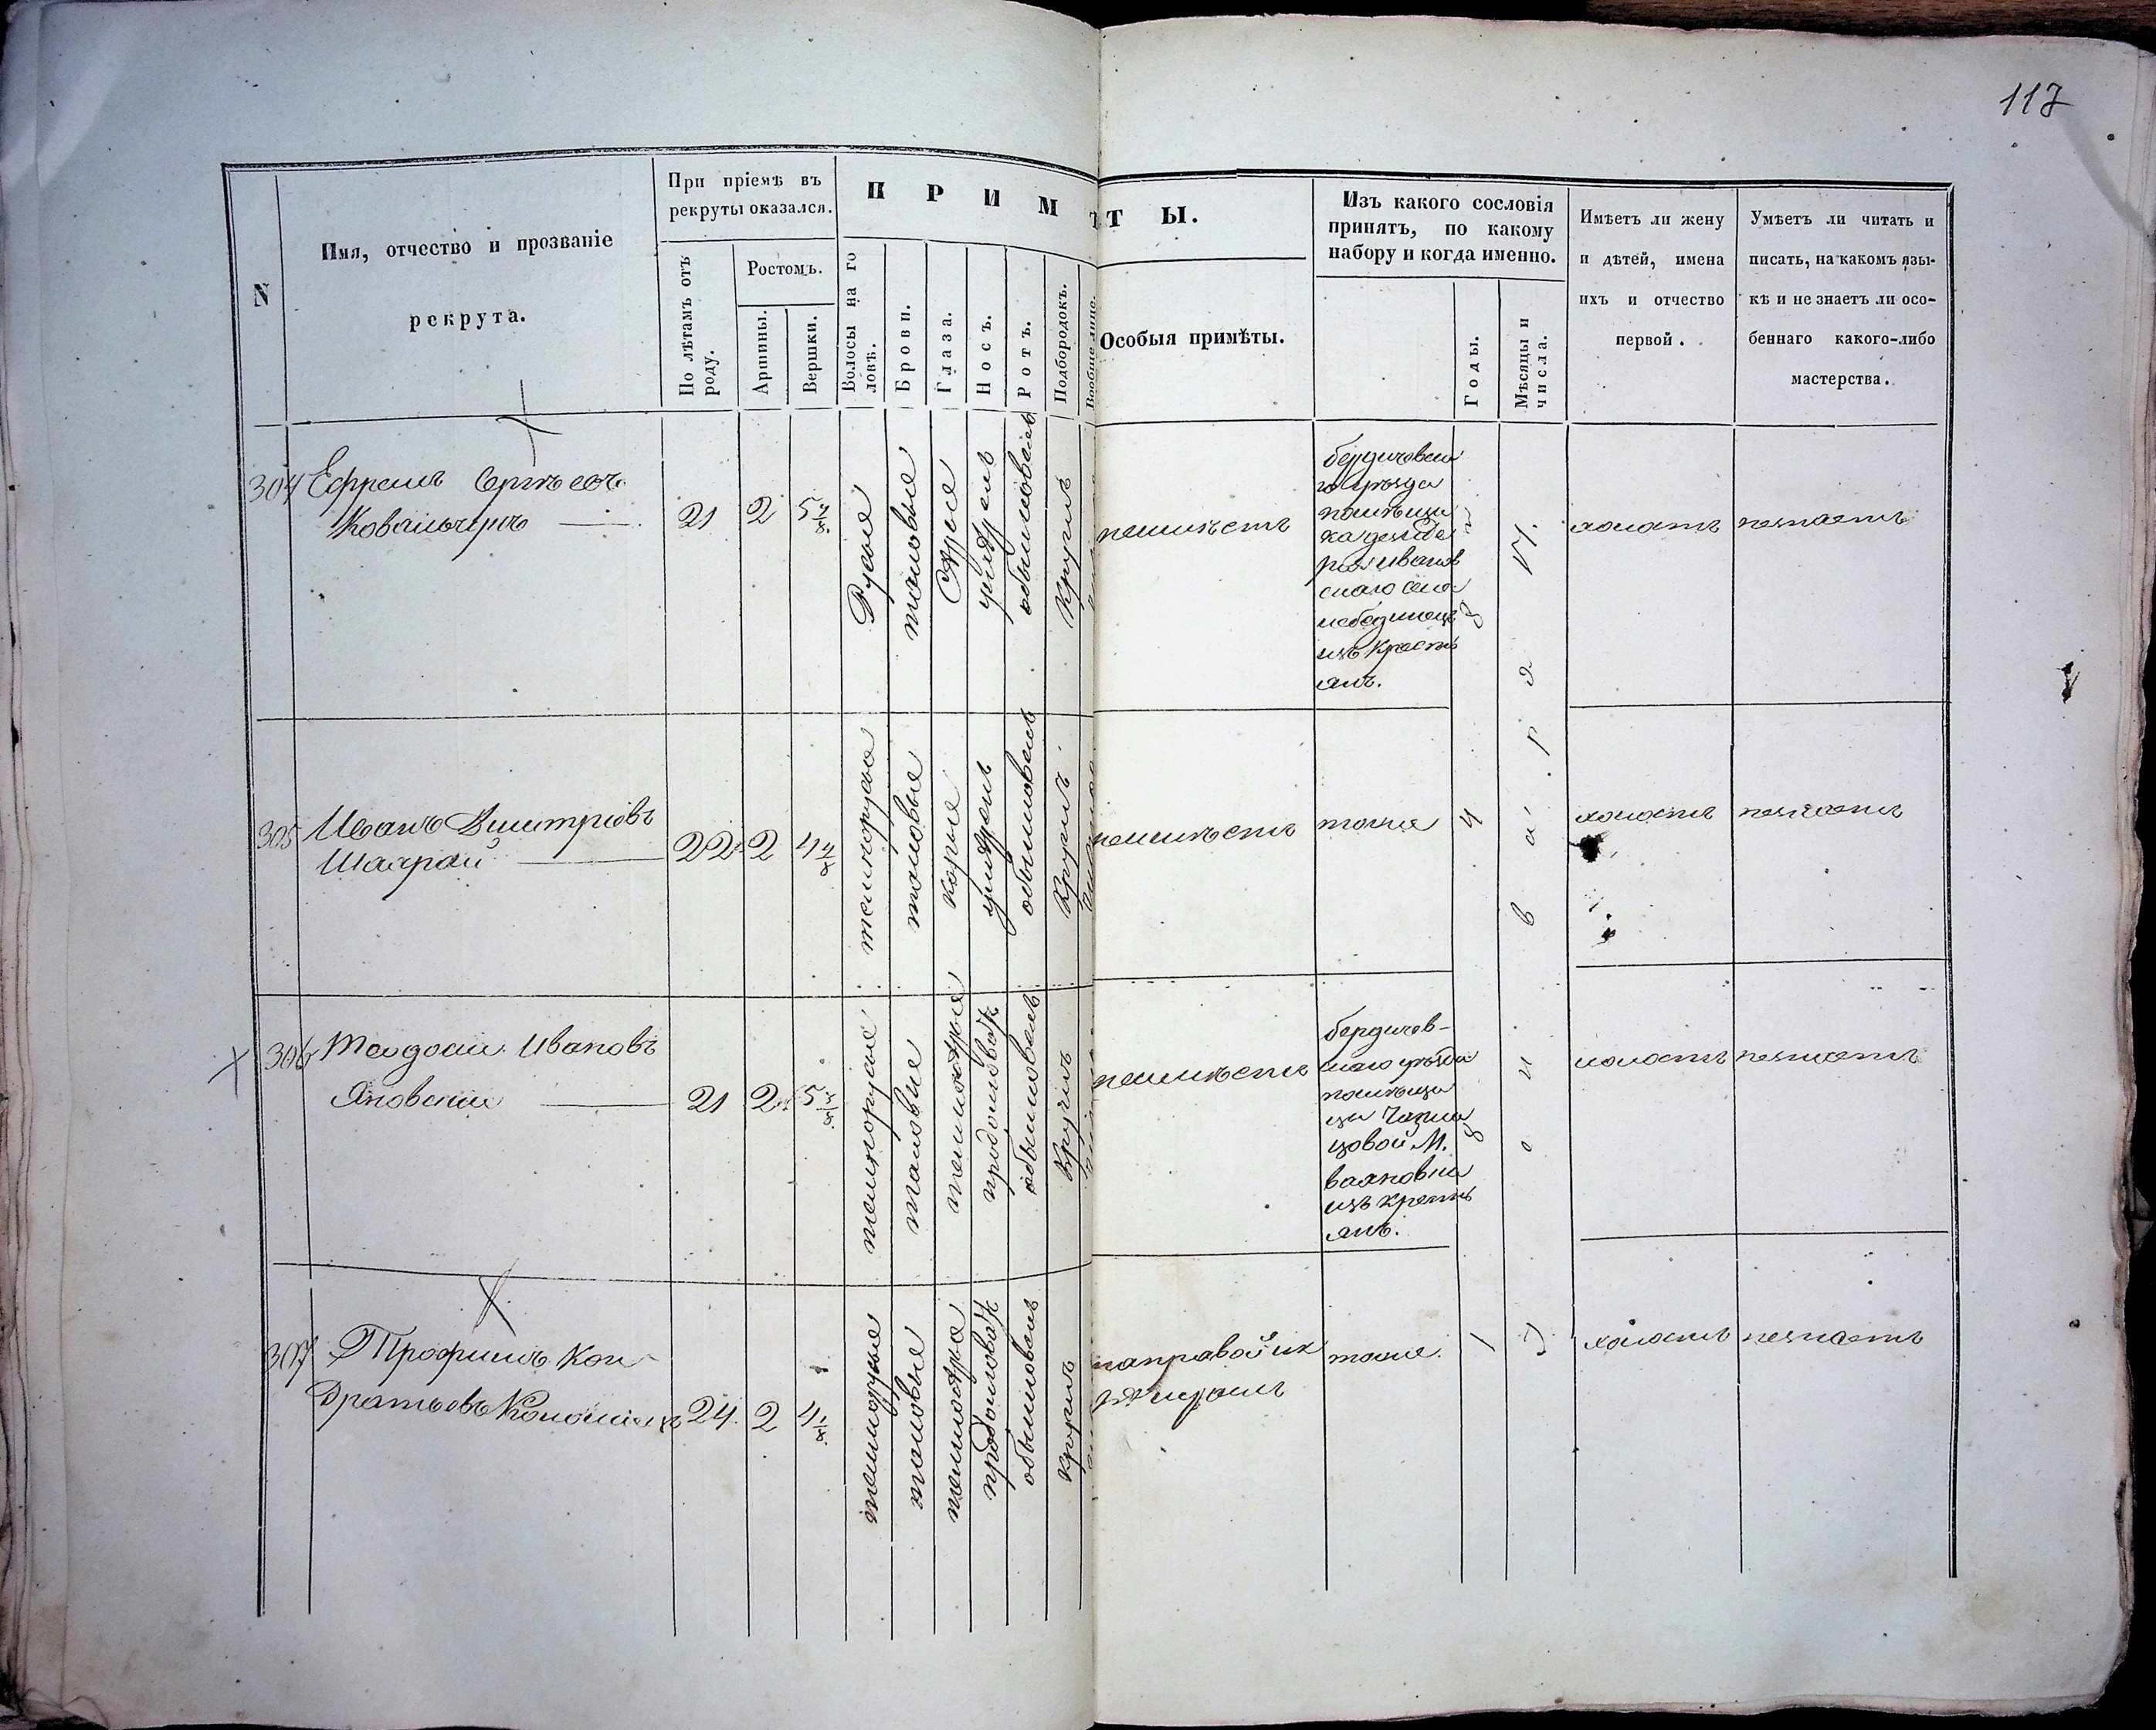 117
N
Имя, отчество и прозваніе
рекрута.
При пріемѣ въ
рекруты оказался.
По лѣтамъ отъ
роду.
Ростомъ.
Аршины.
Вершки.
П Р И М Ѣ Т Ы.
Волосы на го
ловѣ.
Брови.
Глаза.
Носъ.
Ротъ.
Подбородокъ.
Вообще лице.
Особыя примѣты.
Изъ какого сословія
принятъ, по какому
набору и когда именно.
Годы.
Мѣсяцы и
числа.
Имѣетъ ли жену
и дѣтей, имена
ихъ и отчество
первой.
Умѣетъ ли читать и
писать, на какомъ язы-
кѣ и не знаетъ ли осо-
беннаго какого-либо
мастерства.
304
Ефремъ Сергѣевъ
Ковальчукъ
21
2
5 4/8
Русые
таковые
Сѣрые
умѣрен
обыкновенъ
Круглъ
неимѣетъ
бердичевска
го уѣзда
помѣщи
ка
скаго села
изъ крестъ
янъ.
холостъ
незнаетъ
305
Иванъ Дмитріевъ
Шахрай
22
2
4 4/8
темнорусые
таковые
карые
умѣрен
обыкновенъ
Круглъ
неимѣетъ
тоже
холостъ
незнаетъ
306
Теодосій Ивановъ
Яновскій
21
2
5
темнорусые
таковые
темносѣрые
продолговат
обыкновенъ
Круглъ
неимѣетъ
бердичев-
скаго уѣзда
помѣщи
цы
цовой М.
Вахновки
изъ крестъ
янъ.
холостъ
незнаетъ
307
Трофимъ Кон
дратьевъ
24
2
4 1/8
темнорусые
таковые
темносѣрые
продолговат
обыкновенъ
круглъ
направой щек
тоже
холостъ
незнаетъ
1 8 4 8
января